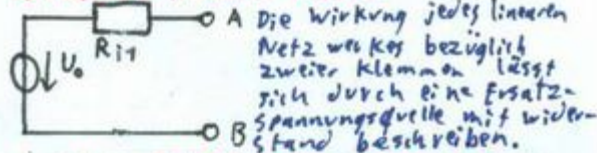 A Die Wirkung jedes linearen
R i1 Netzwerkes bezüglich
U₀ zweier Klemmen lässt
sich durch eine Ersatz-
B spannungsquelle mit wider-
stand beschreiben.